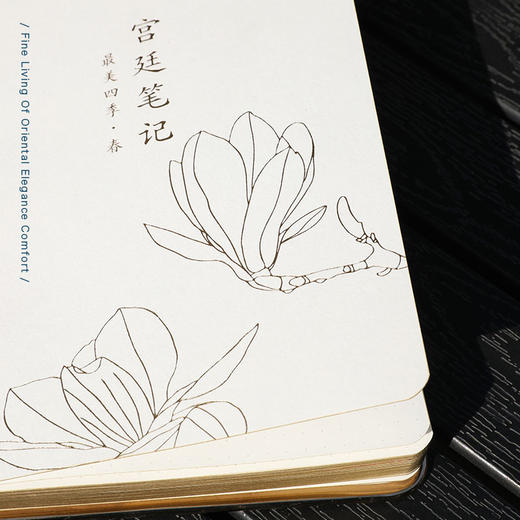 宫廷笔记
最美四季·春
/ Fine Living Of Oriental Elegance Comfort /